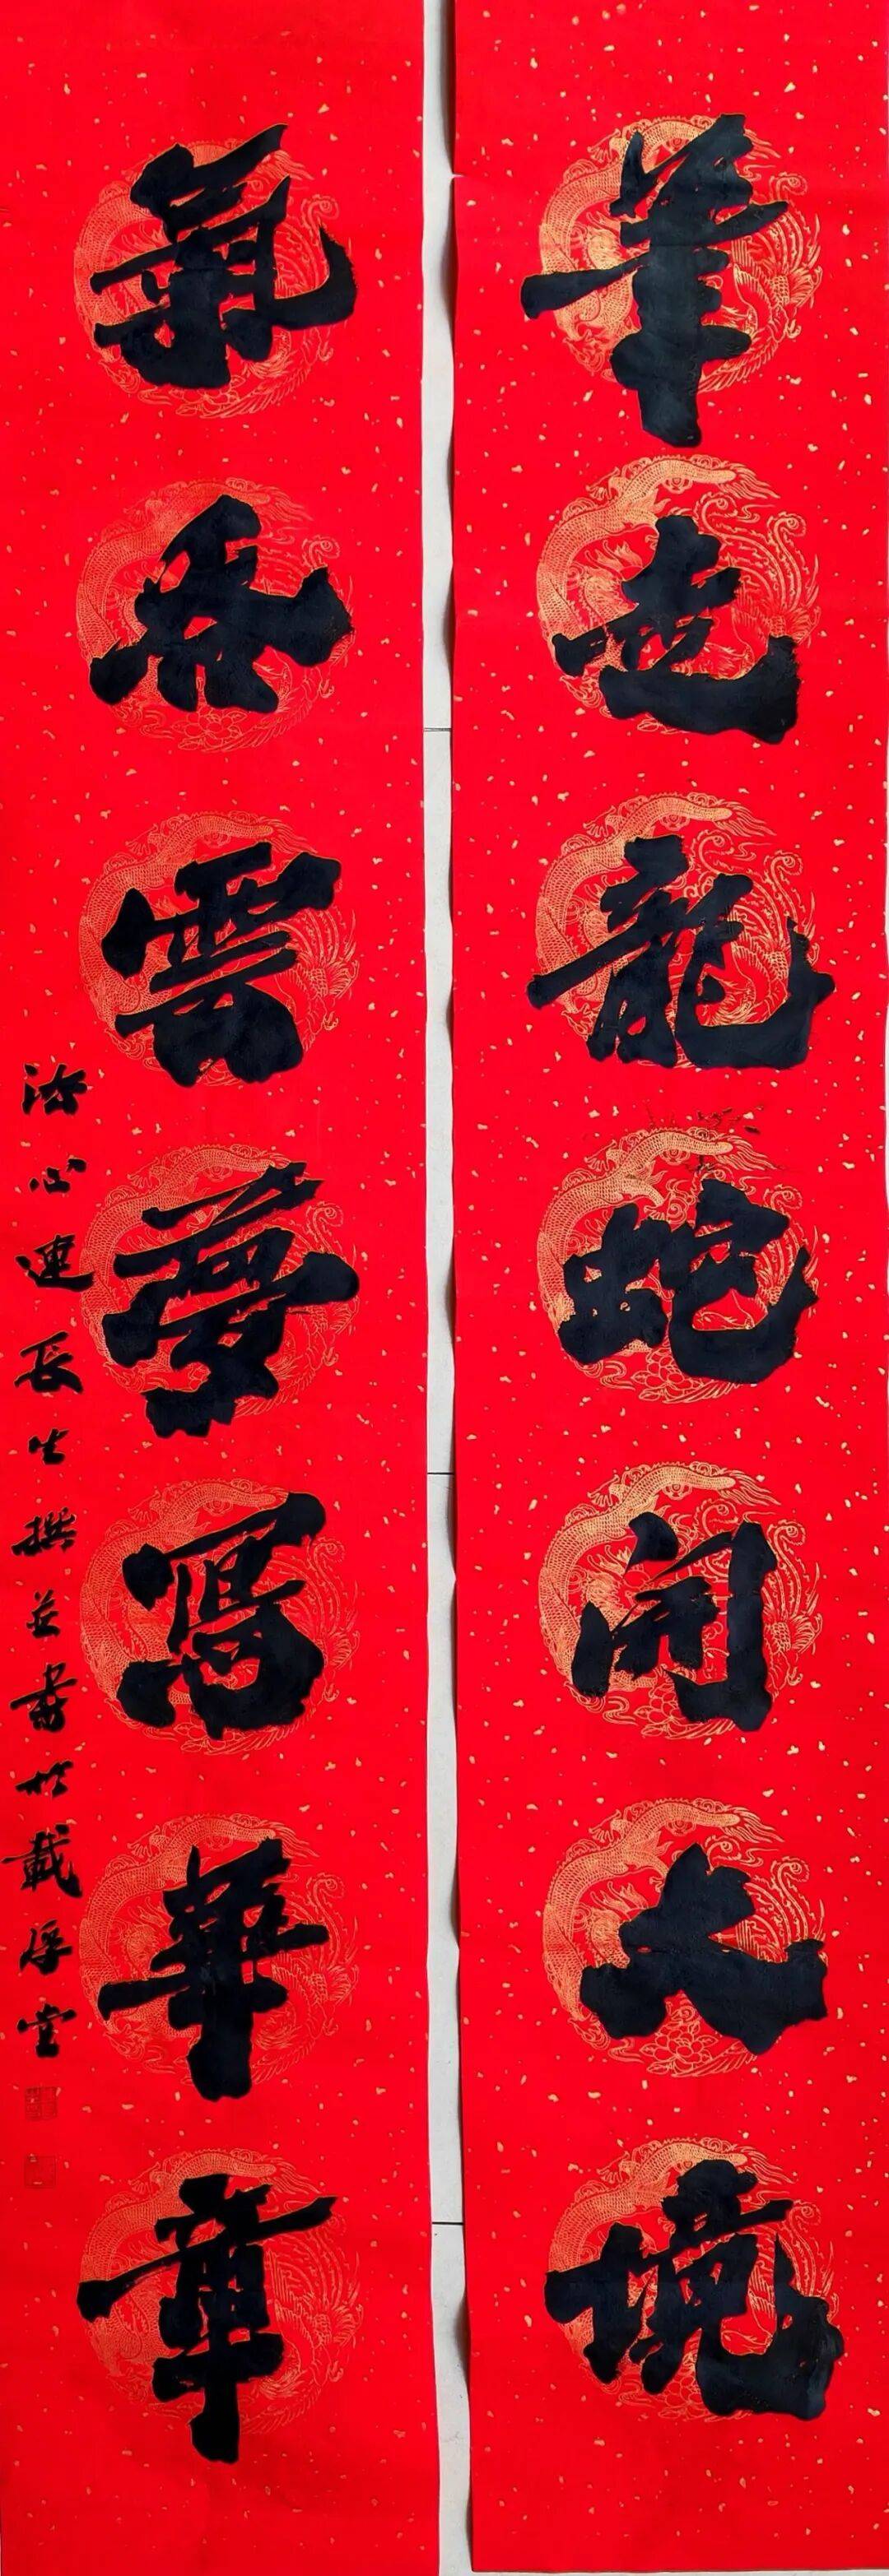 筆走龍蛇開大境
氣吞雲夢寫華章
心連長生撰並書於載厚堂